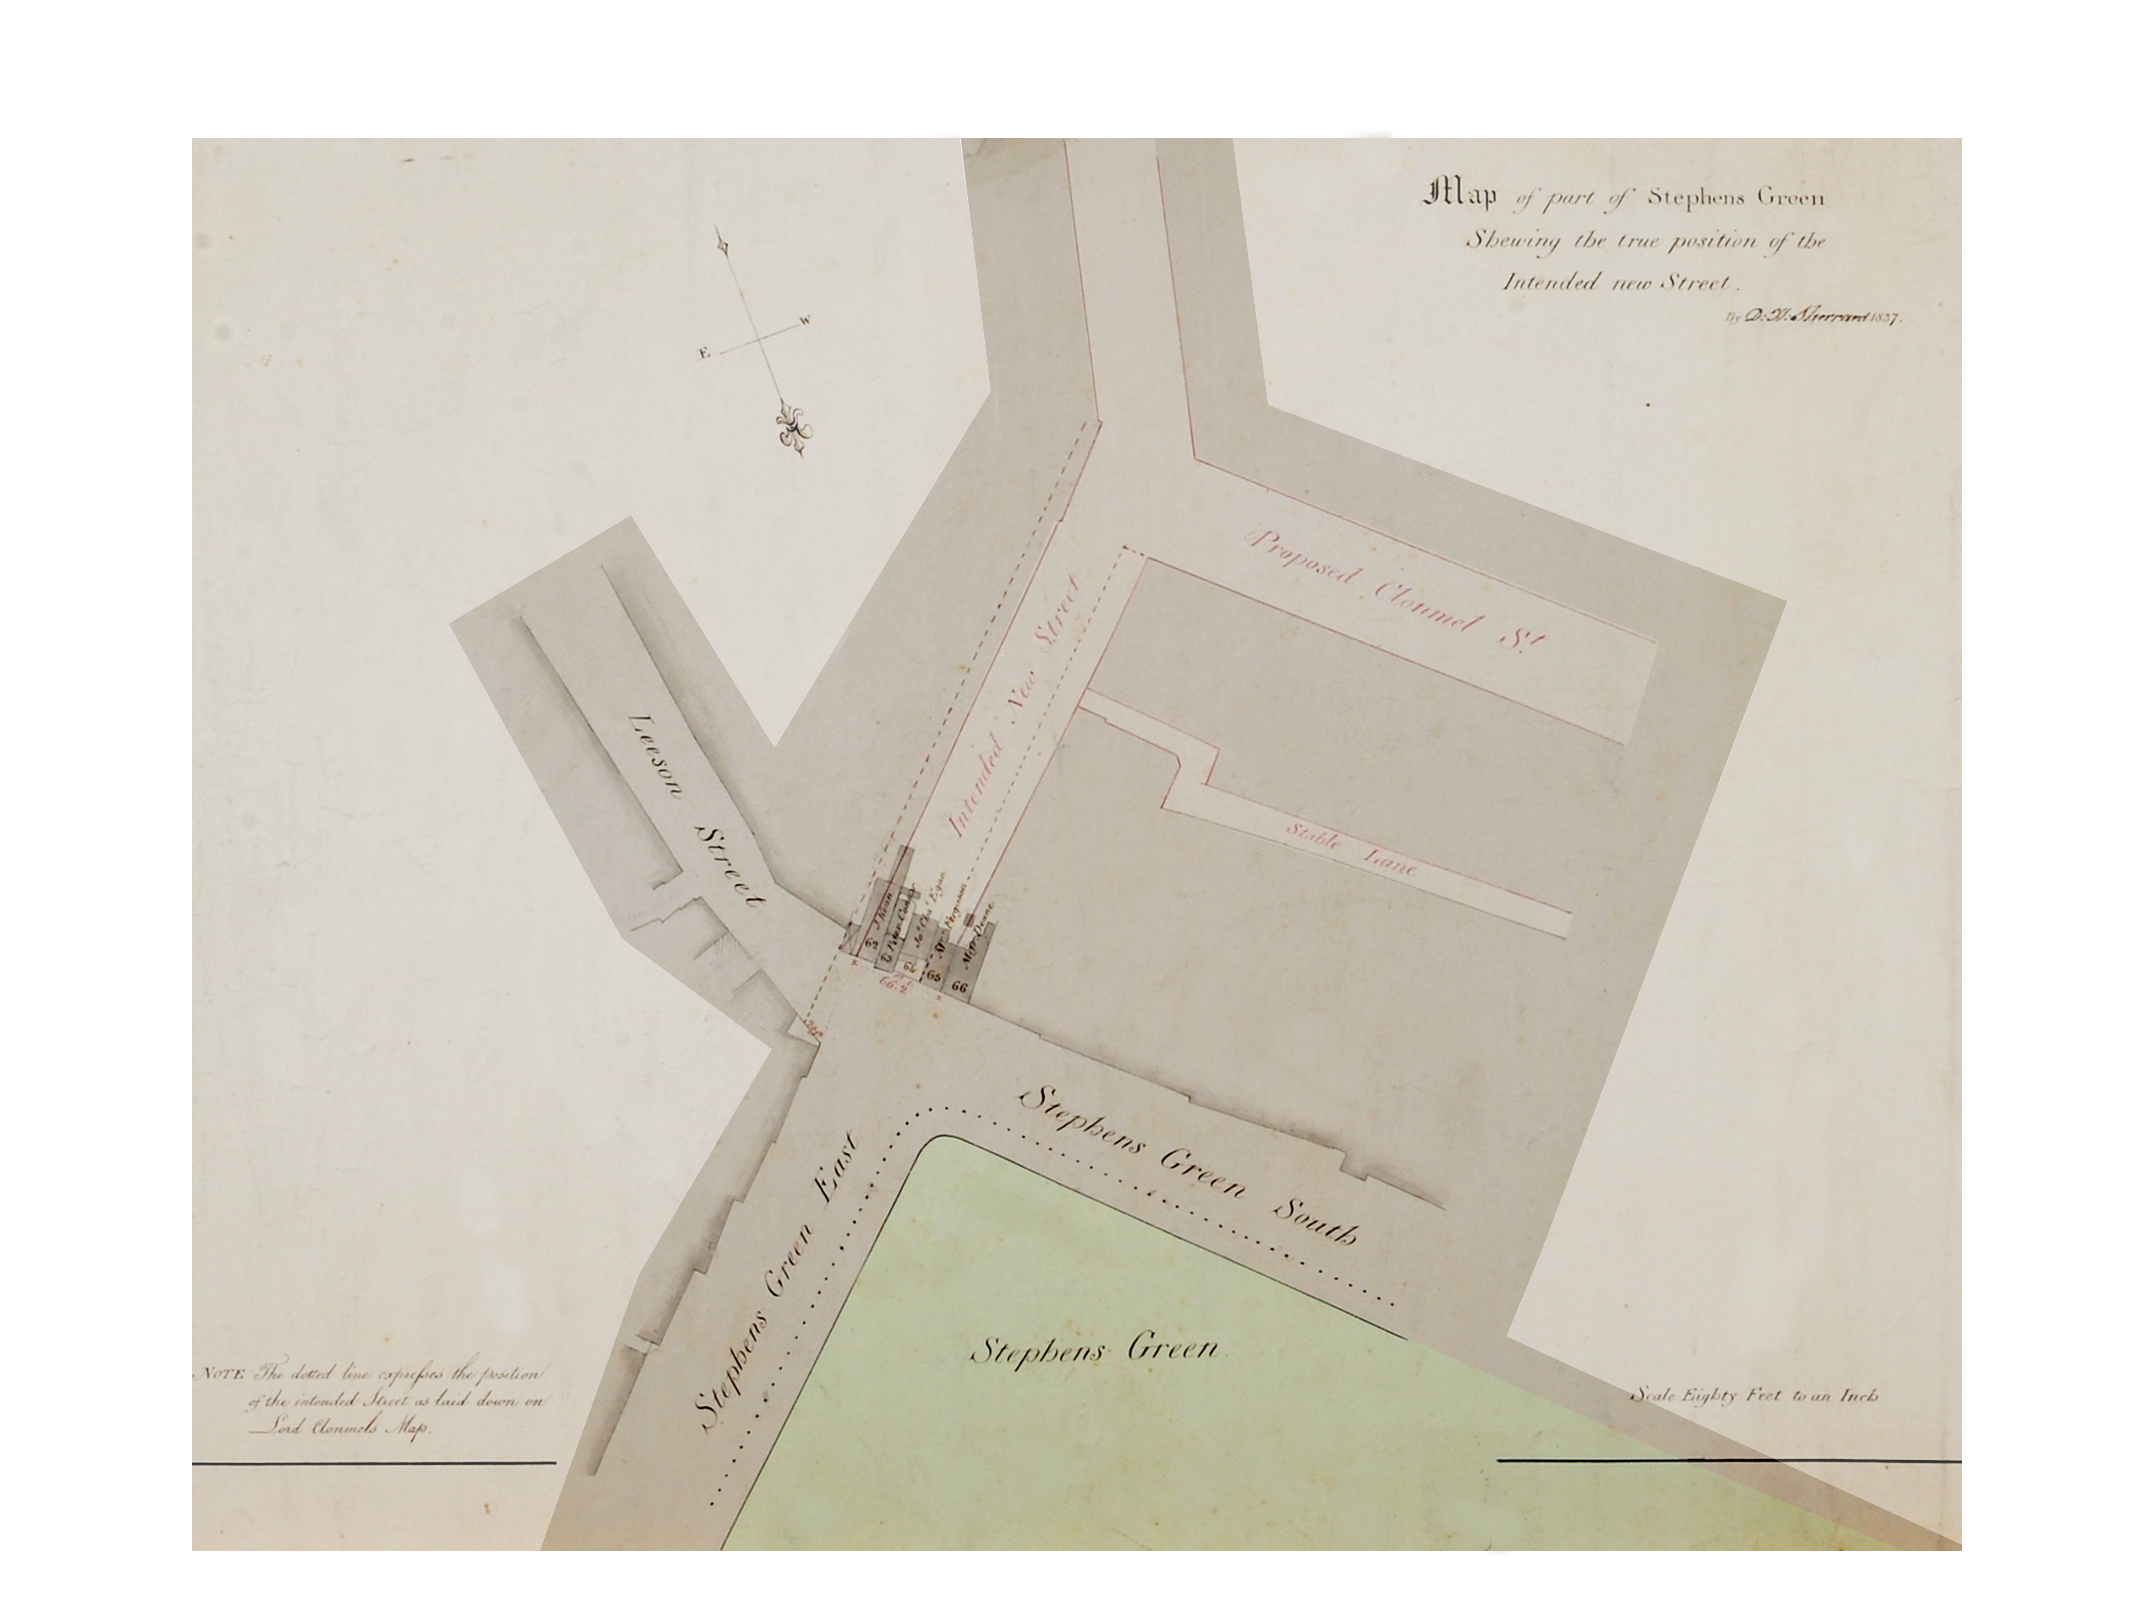 Map of part of Stephens Green
Shewing the true position of the
Intended new Street.
By D. H. Sherrard 1837.
W
E
Proposed Clonmel St.
Intended New Street
Leeson Street
Stable Lane
Jno. Chas. Egan
Ferguson
Miss Deane
62
63
64
65
66
66.2
Stephens Green South
Stephens Green East
Stephens Green
NOTE The dotted line expresses the position
of the intended Street as laid down on
Lord Clonmels Map.
Scale Eighty Feet to an Inch